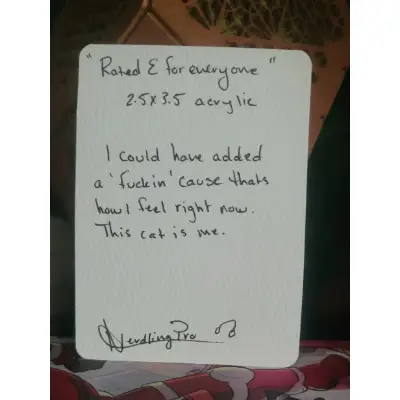 "Rated E for everyone"
2.5x3.5 acrylic
I could have added
a 'fuckin' cause thats
how I feel right now.
This cat is me.
NerdlingPro